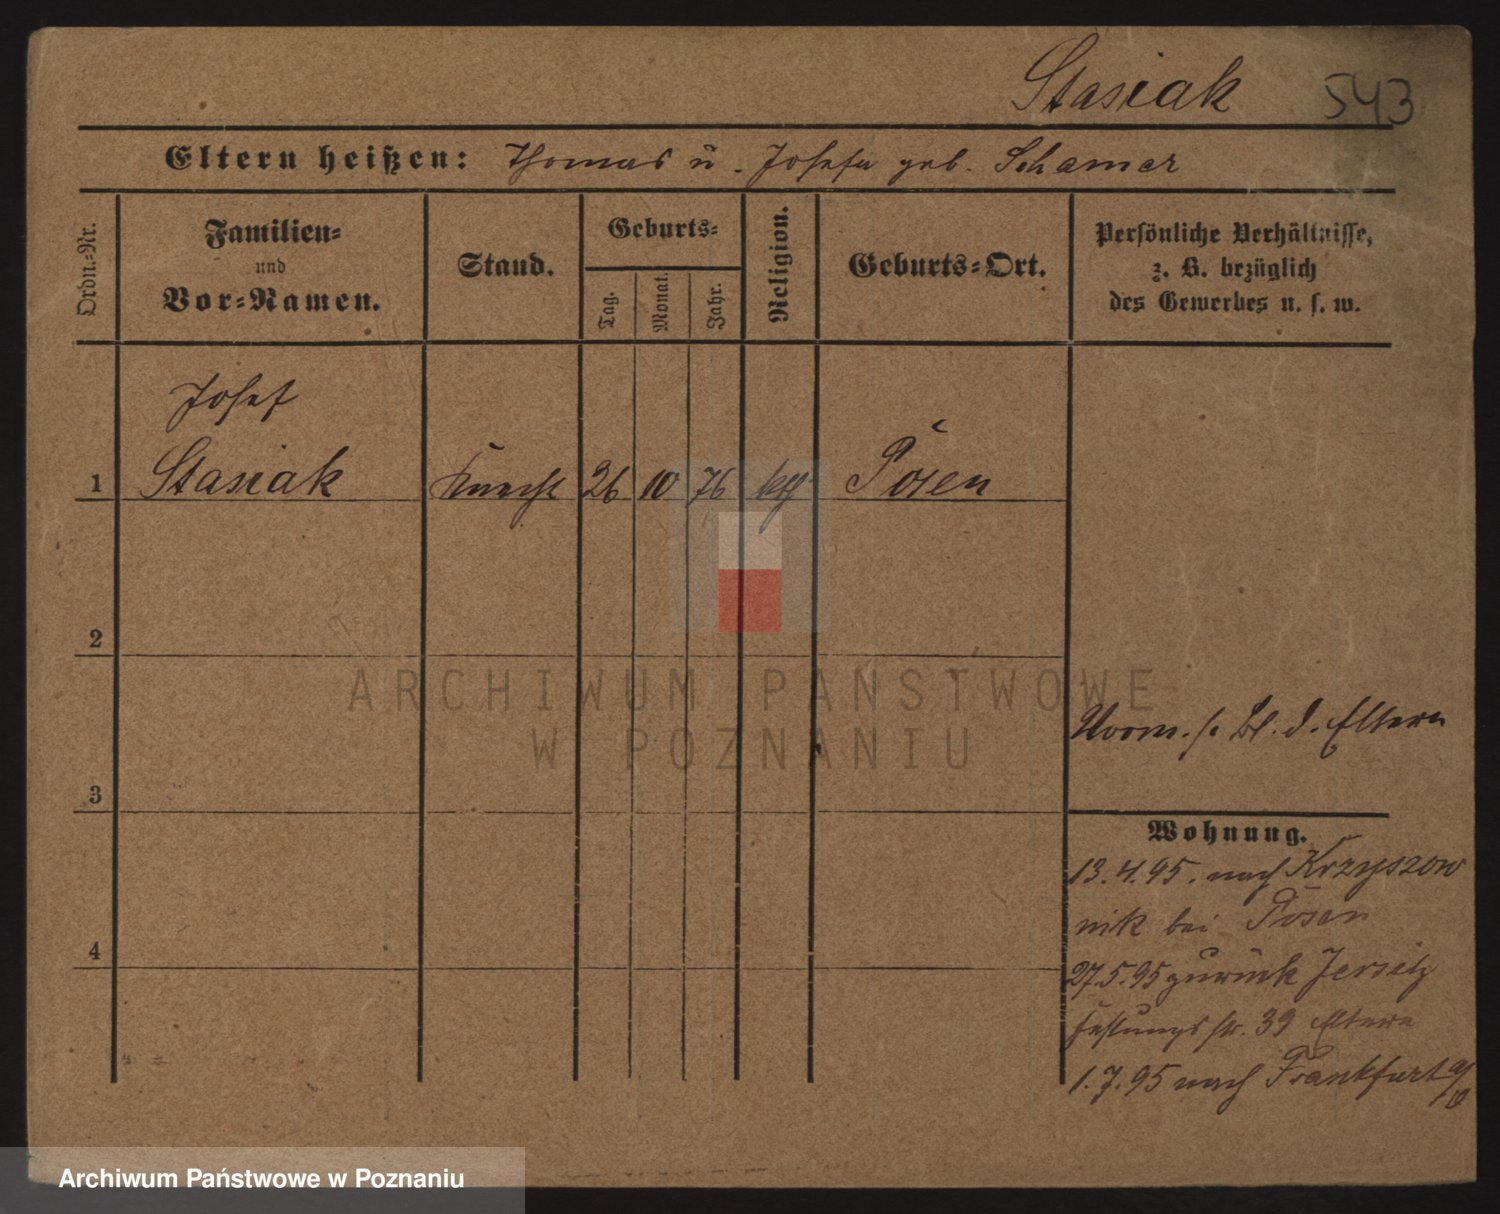 Stasiak 543
Eltern heißen: Thomas u. Josefa geb. Schamer
Ordn.-Nr.
Familien-
und
Vor-Namen.
Stand.
Geburts-
Tag.
Monat.
Jahr.
Religion.
Geburts-Ort.
Persönliche Verhältnisse,
z. B. bezüglich
des Gewerbes u. s. w.
Josef
1 Stasiak Knecht 26 10 76 kth Posen
2
3
4
Vorm. s. Bl. d. Eltern
Wohnung.
13.4.95. nach Krzyszow
nik bei Posen
27.5.95 zurück Jersitz
Festungsstr. 39 Eltern
1.7.95 nach Frankfurt a/O
ARCHIWUM PAŃSTWOWE
W POZNANIU
Archiwum Państwowe w Poznaniu